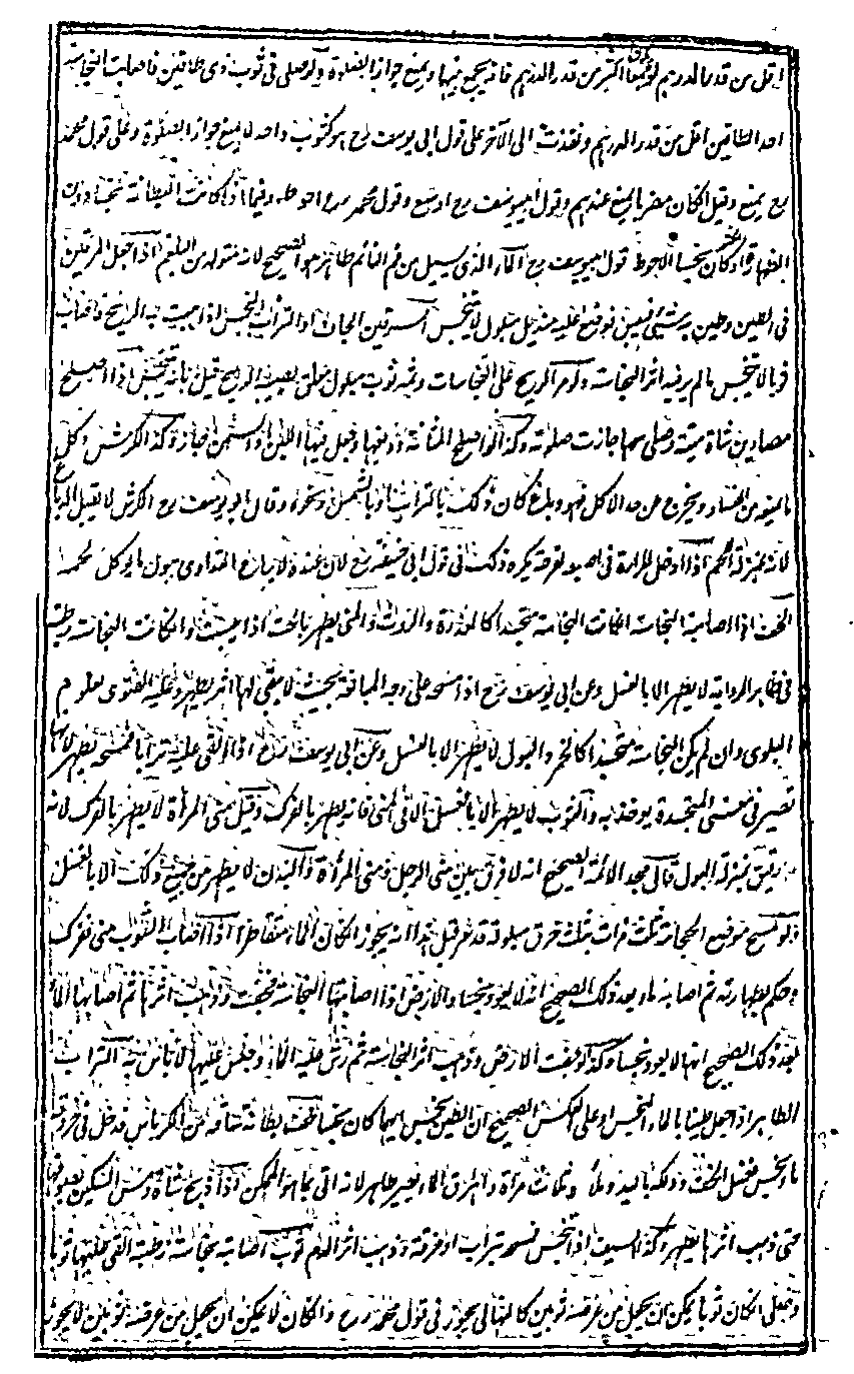 اقل من قدر الدرهم لو جمعا اكثر من قدر الدرهم فانه يجمع بينهما ويمنع جواز الصلوة ولو صلى فى ثوب ذى طاقين فاصابت النجاسة
احد الطاقين اقل من قدر الدرهم ونفذت الى الآخر على قول ابى يوسف رح هو كثوب واحد لا يمنع جواز الصلوة وعلى قول محمد
رح يمنع وقيل ان كان مضربا لا يمنع عندهم وقول ابى يوسف رح اوسع وقول محمد رح احوط وفيما اذا كانت البطانة نجسا دون
الظهارة نجسا الاحوط قول ابى يوسف رح الماء الذى يسيل من فم النائم طاهر هو الصحيح لانه متولد من البلغم اذا جعل السرقين
فى الطين وطين به شئ فيبس فوضع عليه منديل مبلول لا يتنجس السرقين الجاف او التراب النجس اذا هبت به الريح فاصاب
ثوبا لا يتنجس ما لم ير فيه اثر النجاسة ولو مر الريح على النجاسات وثمه ثوب مبلول معلق يصيبه الريح قيل بانه يتنجس اذا اصلح
مصارين شاة ميتة وصلى معها جازت صلوته وكذا لو اصلح المثانة ودبغها وجعل فيها اللبن او السمن جاز وكذا الكرش وكل
ما يمنعه من الفساد ويخرج عن حد الاكل فهو دباغ كان ذلك بالتراب او بالشمس ونحوه وقال ابو يوسف رح الكرش لا يقبل الدباغ
لانه بمنزلة اللحم اذا ادخل المرارة فى اصبعه لقرحة يكره ذلك فى قول ابى حنيفة رح لان عنده لا يباح التداوى ببول ما يوكل لحمه
الخف اذا اصابته النجاسة ان كانت النجاسة متجسدا كالعذرة والروث والمنى يطهر بالحت اذا يبست وان كانت النجاسة رطبة
فى ظاهر الرواية لا يطهر الا بالغسل وعن ابى يوسف رح اذا مسحه على وجه المبالغة بحيث لا يبقى لها اثر يطهر وعليه الفتوى لعموم
البلوى وان لم يكن النجاسة متجسدا كالخمر والبول لا يطهر الا بالغسل وعن ابى يوسف رح اذا القى عليه ترابا فمسحه يطهر لانها
تصير فى معنى المتجسدة يوخذ به والثوب لا يطهر الا بالغسل الا فى المنى فانه يطهر بالفرك وقيل منى المرأة لا يطهر بالفرك لانه
رقيق بمنزلة البول قال مجد الائمة الصحيح انه لا فرق بين منى الرجل ومنى المرأة والبدن لا يطهر من جميع ذلك الا بالغسل
ولو مسح موضع الحجامة ثلث مرات بثلث خرق مبلولة قد مر قبل هذا انه يجوز ان كان الماء متقاطرا اذا اصاب الثوب منى ففرك
وحكم بطهارته ثم اصابه ماء بعد ذلك الصحيح انه لا يعود نجسا والارض اذا اصابتها النجاسة فجفت وذهب اثرها ثم اصابها الماء
بعد ذلك الصحيح انها لا يعود نجسا وكذا لو جفت الارض وذهب اثر النجاسة ثم رش عليه الماء وجلس عليها لا باس به التراب
الطاهر اذا جعل طينا بالماء النجس او على العكس الصحيح ان الطين نجس ايهما كان نجسا خف بطانة ساقه من الكرباس فدخل فى خروقه
ماء نجس فغسل الخف ودلكه باليد وملأ ثلث مرات واهرق الماء يصير طاهر لانه اتى بما هو الممكن اذا ذبح شاة ومسح السكين بصوفها
حتى ذهب اثرها يطهر وكذا السيف اذا تنجس فمسحه بتراب او خرقة وذهب اثر الدم ثوب اصابته نجاسة رطبة القى عليها ثوبا
وصلى ان كان ثوبا يمكن ان يجعل من عرضه ثوبين كالنهالى يجوز فى قول محمد رح وان كان لا يمكن ان يجعل من عرضه ثوبين لا يجوز